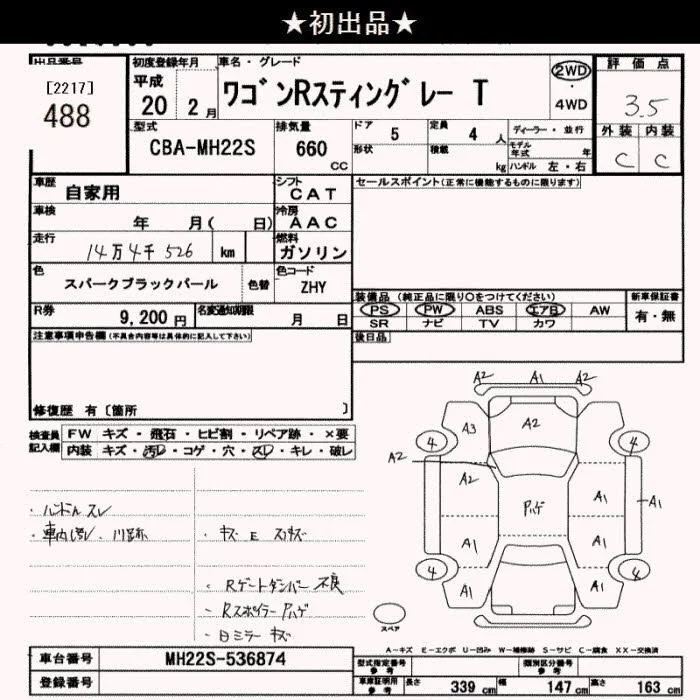 ★初出品★
出品番号
[2217]
488
初度登録年月
平成
20 2月
車名・グレード
ワゴンRスティングレー T
2WD
・
4WD
評価点
3.5
外装 内装
C C
型式
CBA-MH22S
排気量
660 CC
ドア 5
定員 4 人
形状
積載 kg
ディーラー・並行
モデル年式 年
ハンドル 左・右
車歴
自家用
シフト
CAT
セールスポイント(正常に機能するものに限ります)
車検
年 月( 日)
冷房
AAC
走行
14万4千526 km
燃料
ガソリン
色
スパークブラックパール
色替
色コード
ZHY
装備品 (純正品に限り○をつけてください)
新車保証書
PS PW ABS エアB AW
有・無
SR ナビ TV カワ
R券
9,200円
名変通知期限
月 日
注意事項申告欄(不具合内容等は具体的に記入して下さい)
後日品
修復歴 有〔箇所 〕
検査員記入欄
FW キズ・飛石・ヒビ割・リペア跡・×要
内装 キズ・汚レ・コゲ・穴・スレ・キレ・破レ
・ハンドル スレ
・車内汚レ、
・キズ E スリキズ
・Rゲートダンパー 不良
・Rスポイラー Pハゲ
・ミラー キズ
A2 A1 A2
A3 A2
4 4
A2
A2
Pハゲ
A1 A1
A1 A1
4 4
A1 A1
スペア
A-キズ E-エクボ U-凹み W-補修跡 S-サビ C-腐食 XX-交換済
車台番号
MH22S-536874
登録番号
型式指定番号 参考
類別区分番号 参考
車庫証明用 参考
長さ 339 cm
幅 147 cm
高さ 163 cm